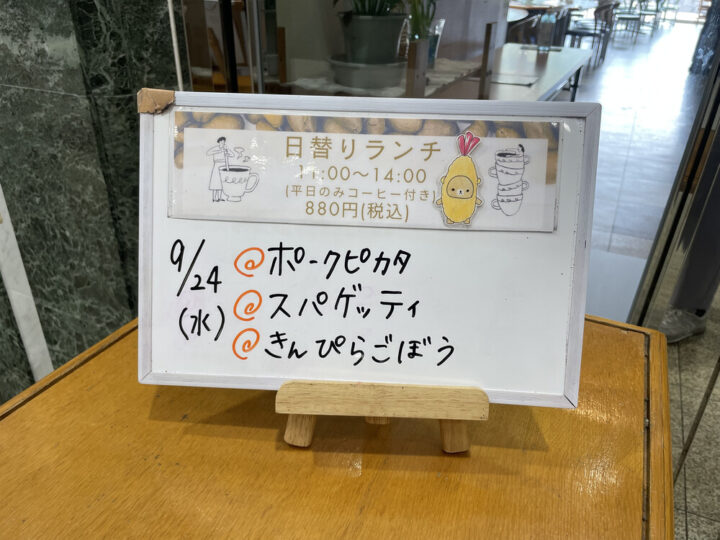 日替りランチ
11:00〜14:00
(平日のみコーヒー付き)
880円(税込)
9/24
(水)
@ポークピカタ
@スパゲッティ
@きんぴらごぼう